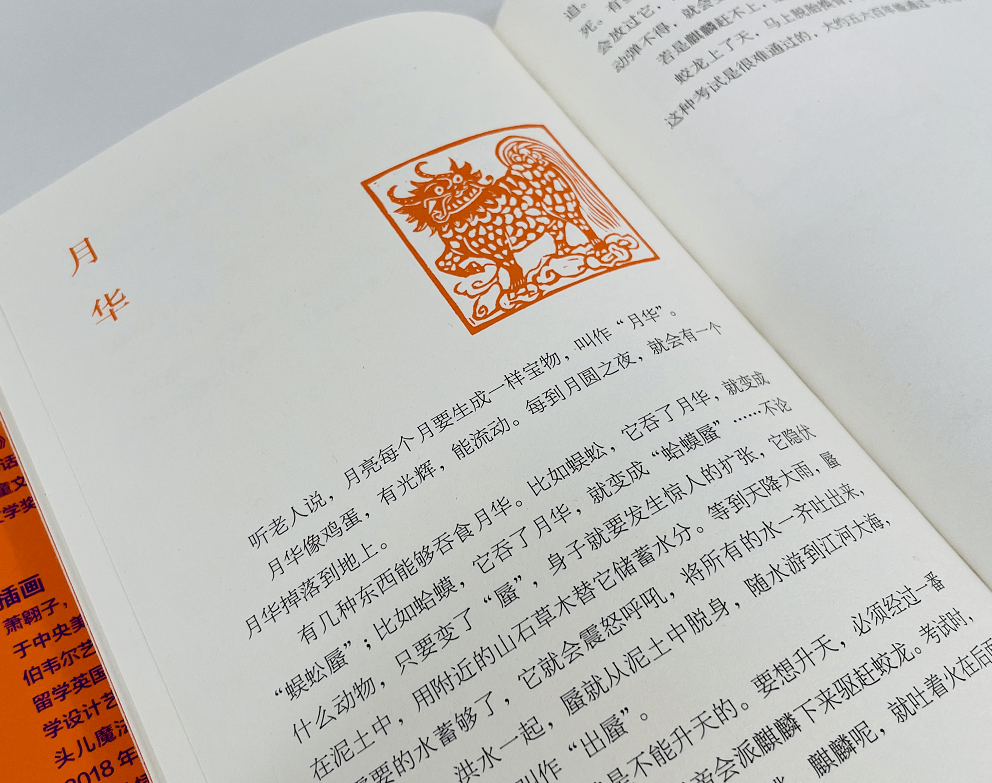 月
华
听老人说，月亮每个月要生成一样宝物，叫作“月华”。
月华像鸡蛋，有光辉，能流动。每到月圆之夜，就会有一个
月华掉落到地上。
有几种东西能够吞食月华。比如蜈蚣，它吞了月华，就变成
“蜈蚣蜃”；比如蛤蟆，它吞了月华，就变成“蛤蟆蜃”……不论
什么动物，只要变了“蜃”，身子就要发生惊人的扩张，它隐伏
在泥土中，用附近的山石草木替它储蓄水分。等到天降大雨，蜃
需要的水蓄够了，它就会震怒呼吼，将所有的水一齐吐出来，
洪水一起，蜃就从泥土中脱身，随水游到江河大海，
叫作“出蜃”。
是不能升天的。要想升天，必须经过一番
帝会派麒麟下来驱赶蛟龙。考试时，
麒麟呢，就吐着火在后面
道。
死。有
会放过它，
动弹不得，就会
若是麒麟赶不上，
蛟龙上了天，马上脱胎换骨，
这种考试是很难通过的，大约五六百年难通过一次
话
童文
文学奖
插画
萧翱子，
于中央美
伯韦尔艺
留学英国
学设计艺
头儿魔法
2018 年